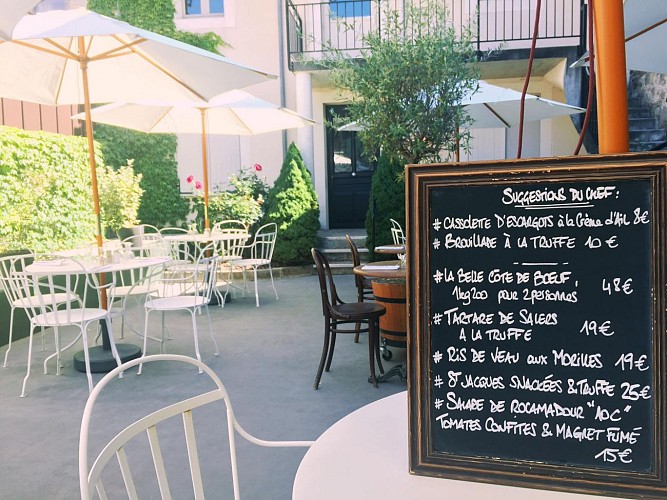 SUGGESTIONS DU CHEF :
# CASSOLETTE D'ESCARGOTS à la Crème d'Ail 8€
# BROUILLADE À LA TRUFFE 10 €
# LA BELLE CÔTE DE BOEUF : 48€
1kg200 pour 2 personnes
# TARTARE DE SALERS
À LA TRUFFE 19€
# RIS DE VEAU AUX MORILLES 19€
# ST JACQUES SNACKÉES & TRUFFE 25€
# SALADE DE ROCAMADOUR "AOC"
TOMATES CONFITES & MAGRET FUMÉ
15€